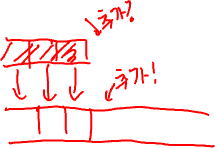 추가?
추가!